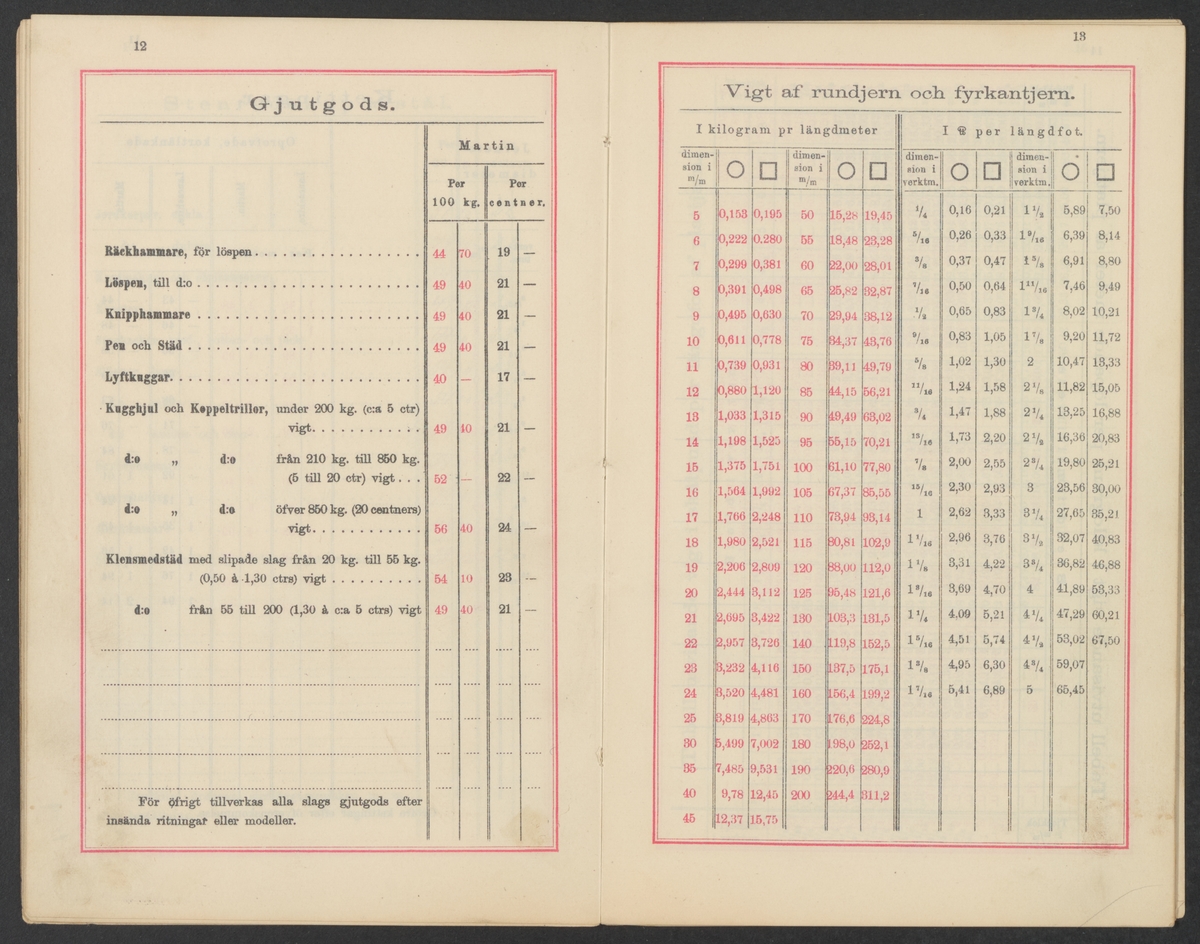 12
Gjutgods.
Martin
Per Per
100 kg. centner.
Räckhammare, för löspen 44 70 19 —
Löspen, till d:o 49 40 21 —
Knipphammare 49 40 21 —
Pen och Städ 49 40 21 —
Lyftkuggar. 40 — 17 —
Kugghjul och Koppeltrillor, under 200 kg. (c:a 5 ctr)
vigt. 49 40 21 —
d:o „ d:o från 210 kg. till 850 kg.
(5 till 20 ctr) vigt 52 — 22 —
d:o „ d:o öfver 850 kg. (20 centners)
vigt. 56 40 24 —
Klensmedstäd med slipade slag från 20 kg. till 55 kg.
(0,50 à 1,30 ctrs) vigt 54 10 23 —
d:o från 55 till 200 (1,30 à c:a 5 ctrs) vigt 49 40 21 —
För öfrigt tillverkas alla slags gjutgods efter
insända ritningar eller modeller.
13
Vigt af rundjern och fyrkantjern.
I kilogram pr längdmeter I ℔ per längdfot.
dimen- dimen- dimen- dimen-
sion i ○ □ sion i ○ □ sion i ○ □ sion i ○ □
m/m m/m verktm. verktm.
5 0,153 0,195 50 15,28 19,45 1/4 0,16 0,21 1 1/2 5,89 7,50
6 0,222 0.280 55 18,48 23,28 5/16 0,26 0,33 1 9/16 6,39 8,14
7 0,299 0,381 60 22,00 28,01 3/8 0,37 0,47 1 5/8 6,91 8,80
8 0,391 0,498 65 25,82 32,87 7/16 0,50 0,64 1 11/16 7,46 9,49
9 0,495 0,630 70 29,94 38,12 1/2 0,65 0,83 1 3/4 8,02 10,21
10 0,611 0,778 75 34,37 43,76 9/16 0,83 1,05 1 7/8 9,20 11,72
11 0,739 0,931 80 39,11 49,79 5/8 1,02 1,30 2 10,47 13,33
12 0,880 1,120 85 44,15 56,21 11/16 1,24 1,58 2 1/8 11,82 15,05
13 1,033 1,315 90 49,49 63,02 3/4 1,47 1,88 2 1/4 13,25 16,88
14 1,198 1,525 95 55,15 70,21 13/16 1,73 2,20 2 1/2 16,36 20,83
15 1,375 1,751 100 61,10 77,80 7/8 2,00 2,55 2 3/4 19,80 25,21
16 1,564 1,992 105 67,37 85,55 15/16 2,30 2,93 3 23,56 30,00
17 1,766 2,248 110 73,94 93,14 1 2,62 3,33 3 1/4 27,65 35,21
18 1,980 2,521 115 80,81 102,9 1 1/16 2,96 3,76 3 1/2 32,07 40,83
19 2,206 2,809 120 88,00 112,0 1 1/8 3,31 4,22 3 3/4 36,82 46,88
20 2,444 3,112 125 95,48 121,6 1 3/16 3,69 4,70 4 41,89 53,33
21 2,695 3,422 130 103,3 131,5 1 1/4 4,09 5,21 4 1/4 47,29 60,21
22 2,957 3,726 140 119,8 152,5 1 5/16 4,51 5,74 4 1/2 53,02 67,50
23 3,232 4,116 150 137,5 175,1 1 3/8 4,95 6,30 4 3/4 59,07
24 3,520 4,481 160 156,4 199,2 1 7/16 5,41 6,89 5 65,45
25 3,819 4,863 170 176,6 224,8
30 5,499 7,002 180 198,0 252,1
35 7,485 9,531 190 220,6 280,9
40 9,78 12,45 200 244,4 311,2
45 12,37 15,75